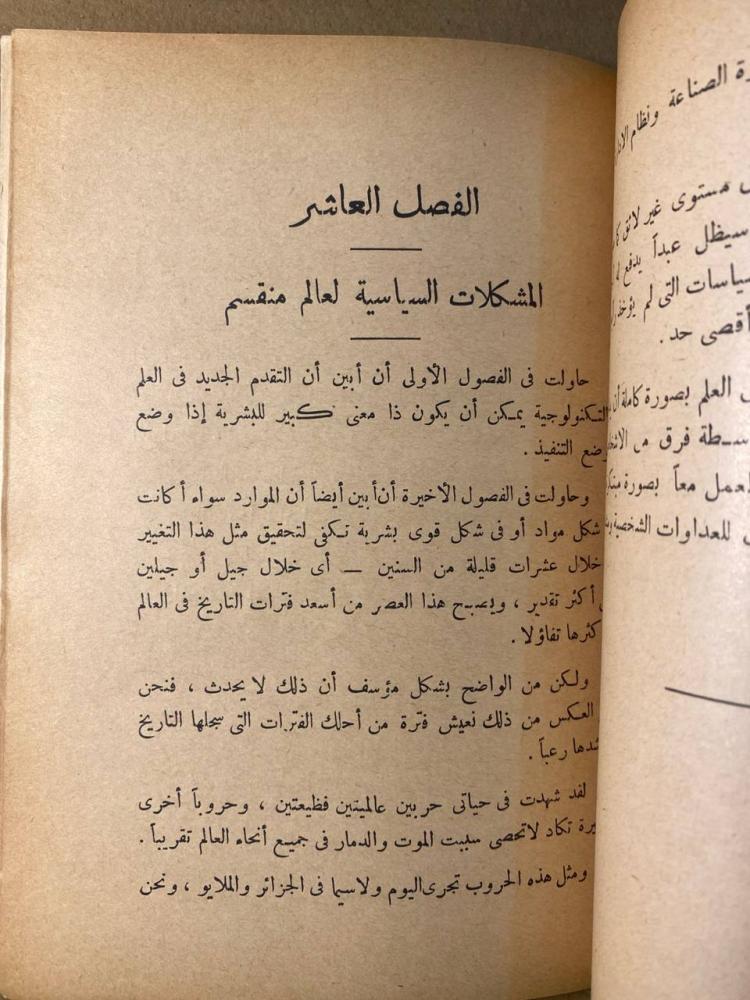 الفصل العاشر
المشكلات السياسية لعالم منقسم
حاولت فى الفصول الأولى أن أبين أن التقدم الجديد فى العلم
التكنولوجية يمكن أن يكون ذا معنى كبير للبشرية إذا وضع
ضع التنفيذ .
وحاولت فى الفصول الأخيرة أن أبين أيضاً أن الموارد سواء أكانت
شكل مواد أو فى شكل قوى بشرية تكفى لتحقيق مثل هذا التغيير
خلال عشرات قليلة من السنين — أى خلال جيل أو جيلين
أكثر تقدير ، ويصبح هذا العصر من أسعد فترات التاريخ فى العالم
كثرها تفاؤلا .
ولكن من الواضح بشكل مؤسف أن ذلك لا يحدث ، فنحن
العكس من ذلك نعيش فترة من أحلك الفترات التى سجلها التاريخ
شدها رعباً .
لقد شهدت فى حياتى حربين عالميتين فظيعتين ، وحروباً أخرى
يرة تكاد لاتحصى سببت الموت والدمار فى جميع أنحاء العالم تقريباً .
ومثل هذه الحروب تجرى اليوم ولاسيما فى الجزائر والملايو ، ونحن
رة الصناعة ونظام
مستوى غير لائق
سيظل عبداً يدفع
سياسات التى لم يؤخذ
أقصى حد .
العلم بصورة كاملة
سطة فرق من
لعمل معاً بصورة
للعداوات الشخصية